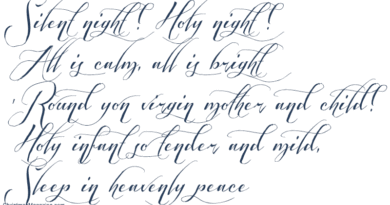 Silent night! Holy night!
All is calm, all is bright
'Round yon virgin mother and child!
Holy infant so tender and mild,
Sleep in heavenly peace